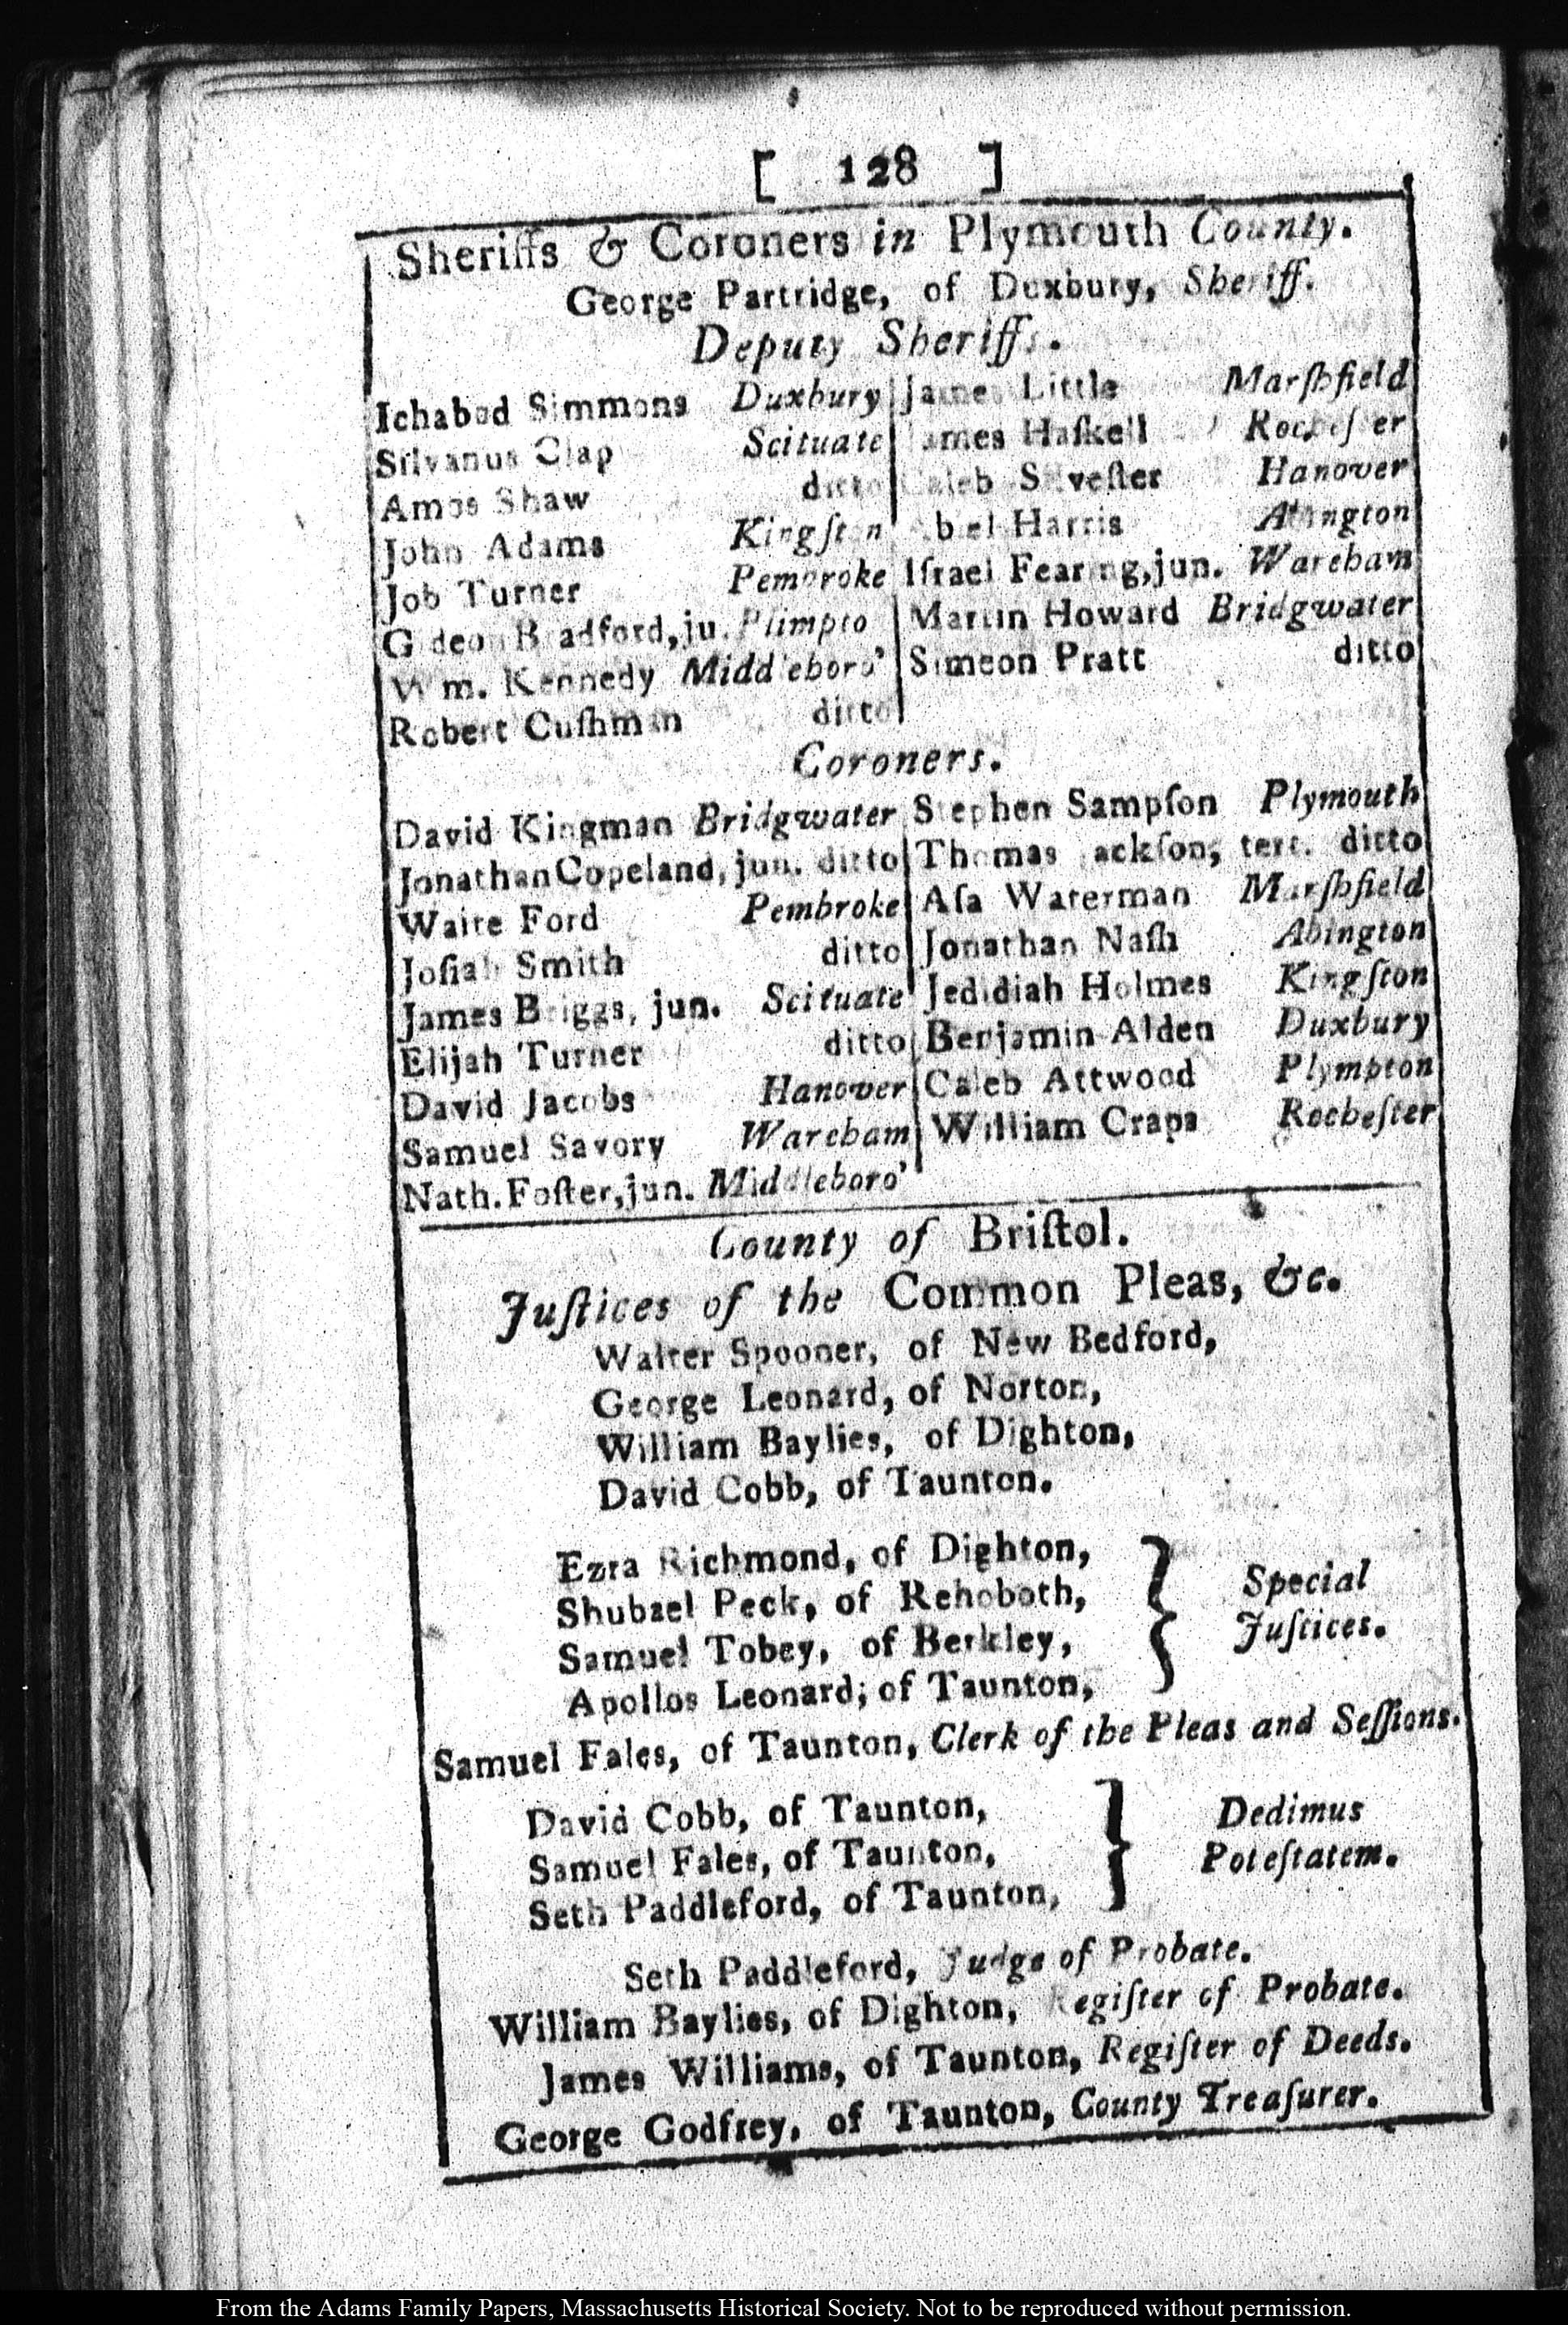 [ 128 ]
Sheriffs & Coroners in Plymouth County.
George Partridge, of Duxbury, Sheriff.
Deputy Sheriffs.
Ichabod Simmons Duxbury
Silvanus Clap Scituate
Amos Shaw ditto
John Adams Kingſton
Job Turner Pembroke
Gideon Bradford, ju. Plimpto
Wm. Kennedy Middleboro'
Robert Cuſhman ditto
James Little Marſhfield
James Haſkell Rocheſter
Caleb Silveſter Hanover
Abiel Harris Abington
Iſrael Fearing, jun. Wareham
Martin Howard Bridgwater
Simeon Pratt ditto
Coroners.
David Kingman Bridgwater
Jonathan Copeland, jun. ditto
Waite Ford Pembroke
Joſiah Smith ditto
James Briggs, jun. Scituate
Elijah Turner ditto
David Jacobs Hanover
Samuel Savory Wareham
Nath. Foſter, jun. Middleboro'
Stephen Sampſon Plymouth
Thomas Jackſon, tert. ditto
Aſa Waterman Marſhfield
Jonathan Naſh Abington
Jedidiah Holmes Kingſton
Benjamin Alden Duxbury
Caleb Attwood Plympton
William Craps Rocheſter
County of Briſtol.
Juſtices of the Common Pleas, &c.
Walter Spooner, of New Bedford,
George Leonard, of Norton,
William Baylies, of Dighton,
David Cobb, of Taunton.
Ezra Richmond, of Dighton,
Shubael Peck, of Rehoboth,
Samuel Tobey, of Berkley,
Apollos Leonard, of Taunton,
Special
Juſtices.
Samuel Fales, of Taunton, Clerk of the Pleas and Seſſions.
David Cobb, of Taunton,
Samuel Fales, of Taunton,
Seth Paddleford, of Taunton,
Dedimus
Poteſtatem.
Seth Paddleford, Judge of Probate.
William Baylies, of Dighton, Regiſter of Probate.
James Williams, of Taunton, Regiſter of Deeds.
George Godfrey, of Taunton, County Treaſurer.
From the Adams Family Papers, Massachusetts Historical Society. Not to be reproduced without permission.